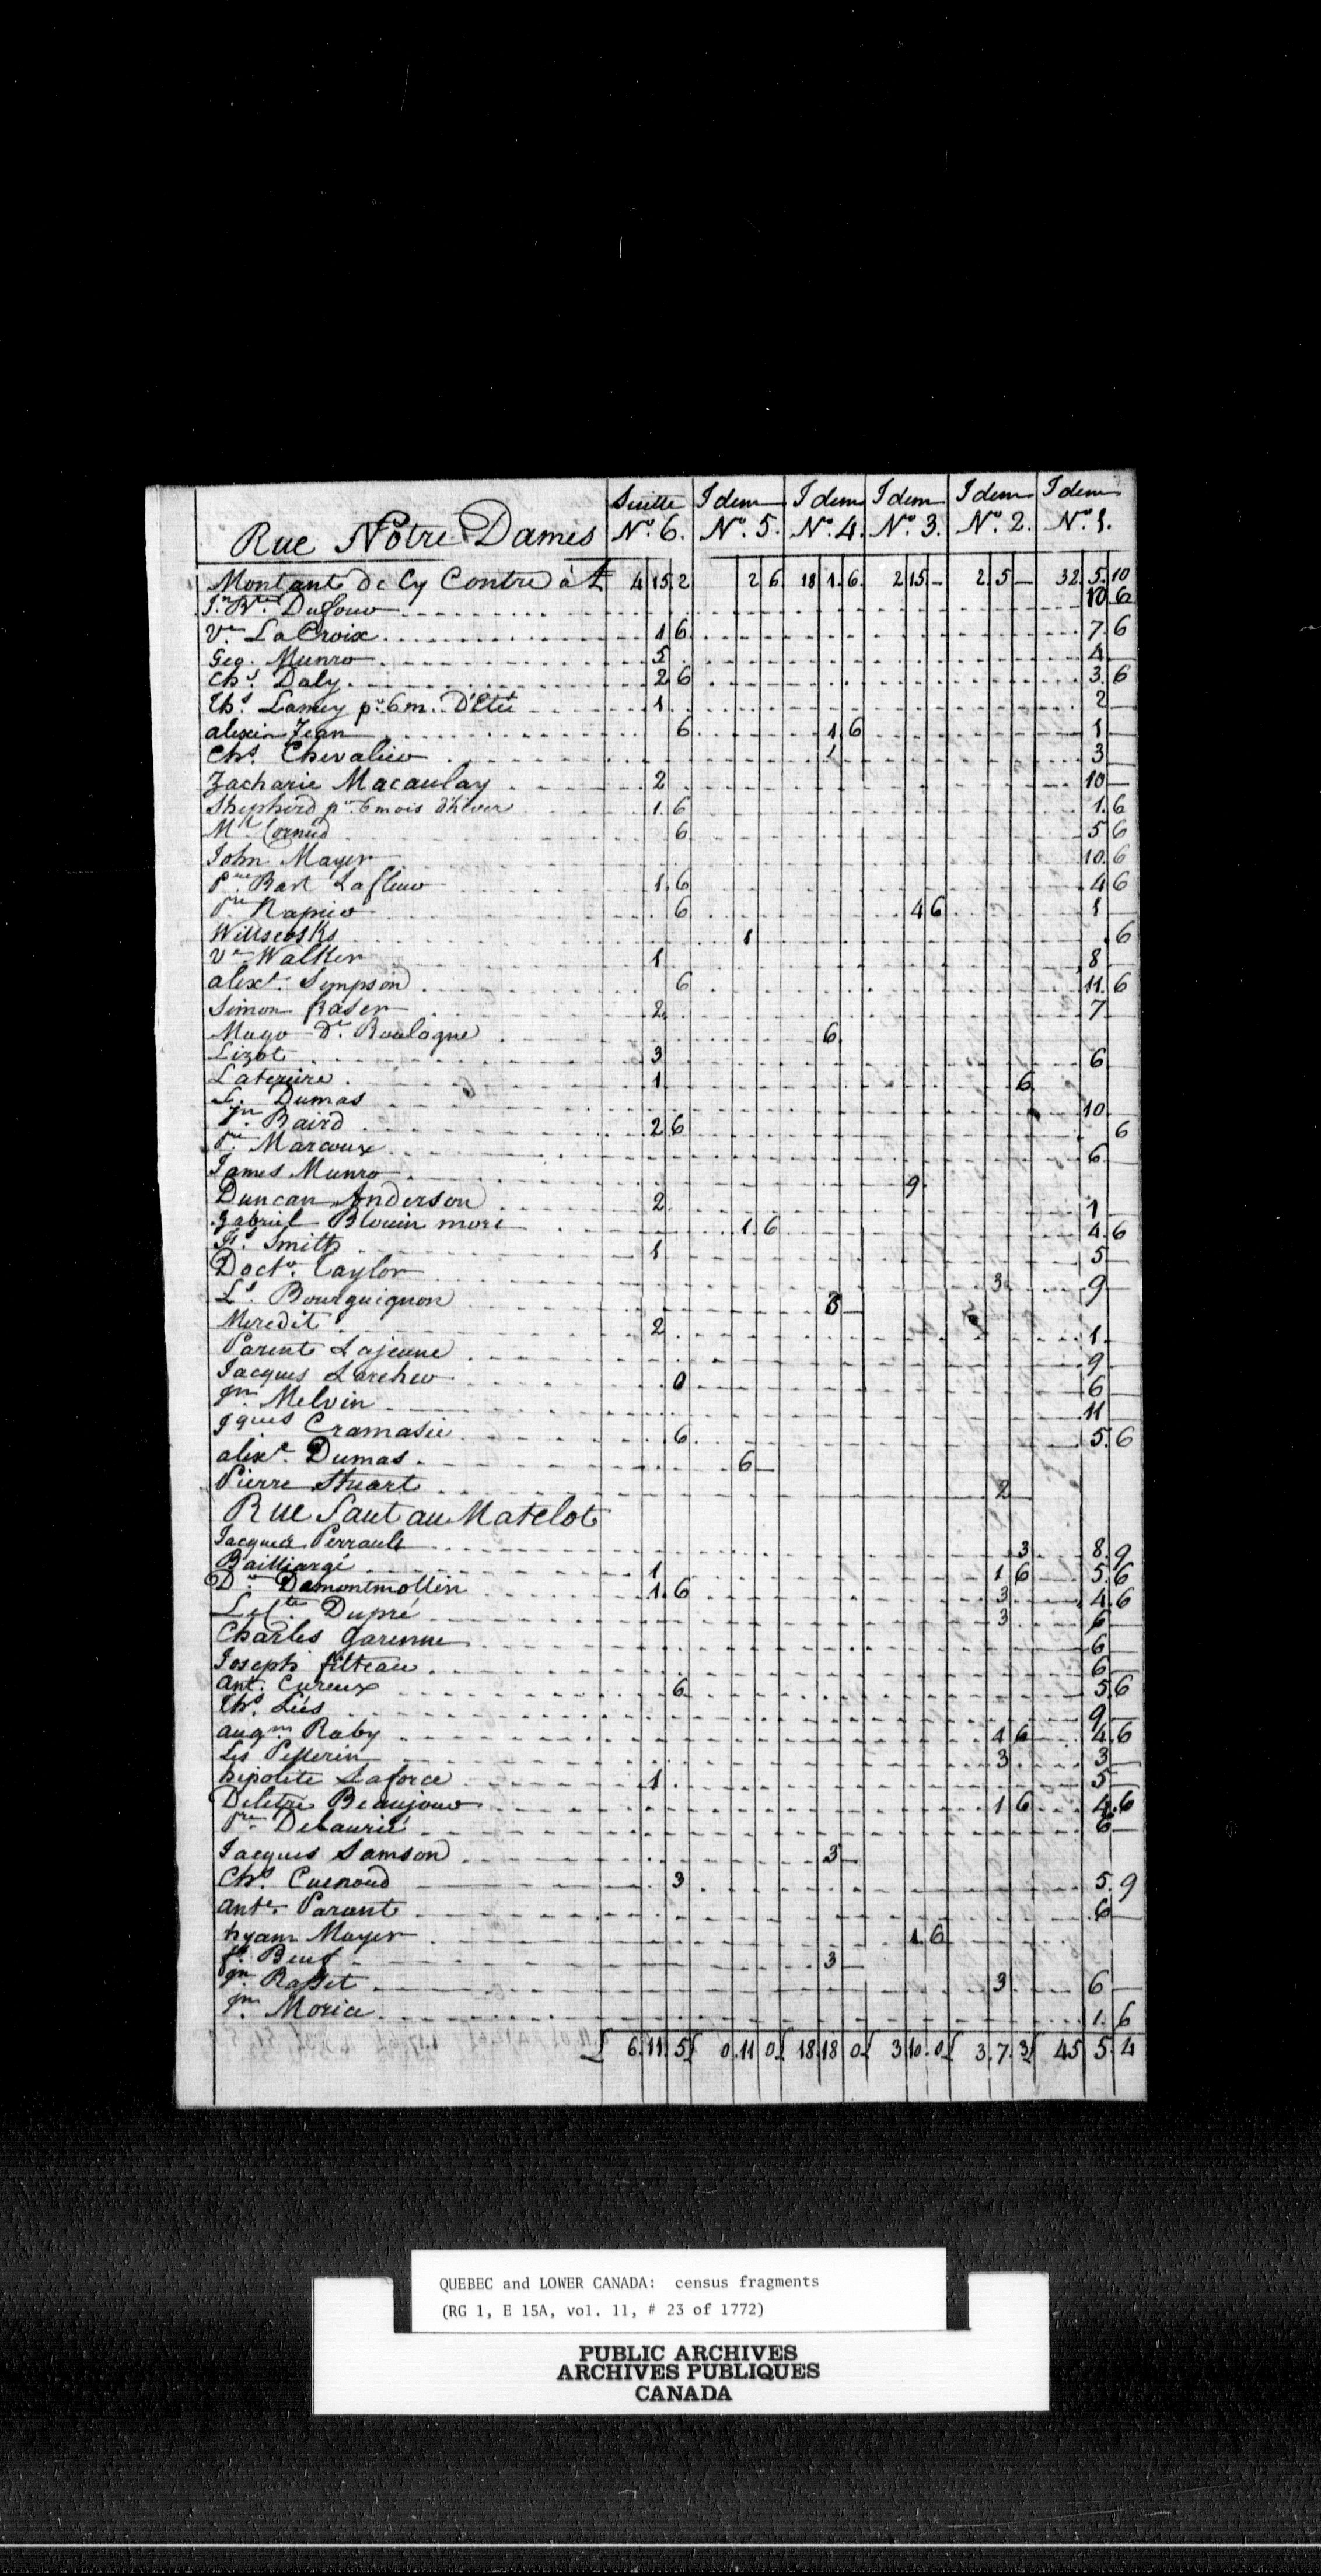 Suitte Idem Idem Idem Idem Idem
Rue Notre Dames No. 6. No. 5. No. 4. No. 3. No. 2. No. 1.
Montant de Cy Contre à £ 4 15 2 2 6 18 1 6 2 15 — 2 5 — 32 5 10
Jn. Bte. Dufour 10 6
Ve. LaCroix 1 6 7 6
Geo. Munro 5 4
Chs. Daly 2 6 3 6
Ths. Lamey pr. 6 m. D'Eté 1 2
alexis Jean 6 1 6 1
Chs. Chevalier 1 3
Zacharie Macaulay 2 10
Shepherd pr. 6 mois d'hiver 1 6 1 6
Mr. Cornud 6 5 6
John Mayer 10 6
Pre. Bart Lafleur 1 6 4 6
Pre. Napier 6 4 6 1
Willscosks 1 6
Ve. Walker 1 8
alexr. Sympson 6 11 6
Simon fraser 2 7
Mayo De. Boulogne 6
Lizot 3 6
Laterière 1 6
L. Dumas 10
Jn. Baird 2 6 6
Pre. Marcoux 6
James Munro 9
Duncan Anderson 2 1
Gabriel Blouin mort 1 6 4 6
Js. Smith 1 5
Doctr. Taylor 3 9
Ls. Bourguignon 3
Meredit 2 1
Parent Lajeune 9
Jacques Larcher 0 6
Jn. Melvin 11
Jques Cramasie 6 5 6
alexr. Dumas 6
Pierre Stuart 2
Rue Saut au Matelot
Jacques Perrault 3 8 9
Bailliargé 1 1 6 5 6
Dr. Damontmollin 1 6 3 4 6
Lte. Dupré 3 6
Charles Garenne 6
Joseph filteau 6
Ant. Cureux 6 5 6
Ths. Lées 9
augn. Raby 4 6 4 6
Ls Pellerin 3 3
hipolite Laforce 1 5
Deletre Beaujour 1 6 4 6
Pre. Delaurié 6
Jacques Samson 3
Chs. Cuenoud 3 5 9
ante. Parant 6
hyam Mayer 1 6
fs. Beuf 3
Jn. Rasset 3 6
Jn. Morice 1 6
£ 6 11 5 £ 0 11 0 £ 18 18 0 £ 3 10 0 £ 3 7 3 £ 45 5 4
QUEBEC and LOWER CANADA: census fragments
(RG 1, E 15A, vol. 11, # 23 of 1772)
PUBLIC ARCHIVES
ARCHIVES PUBLIQUES
CANADA